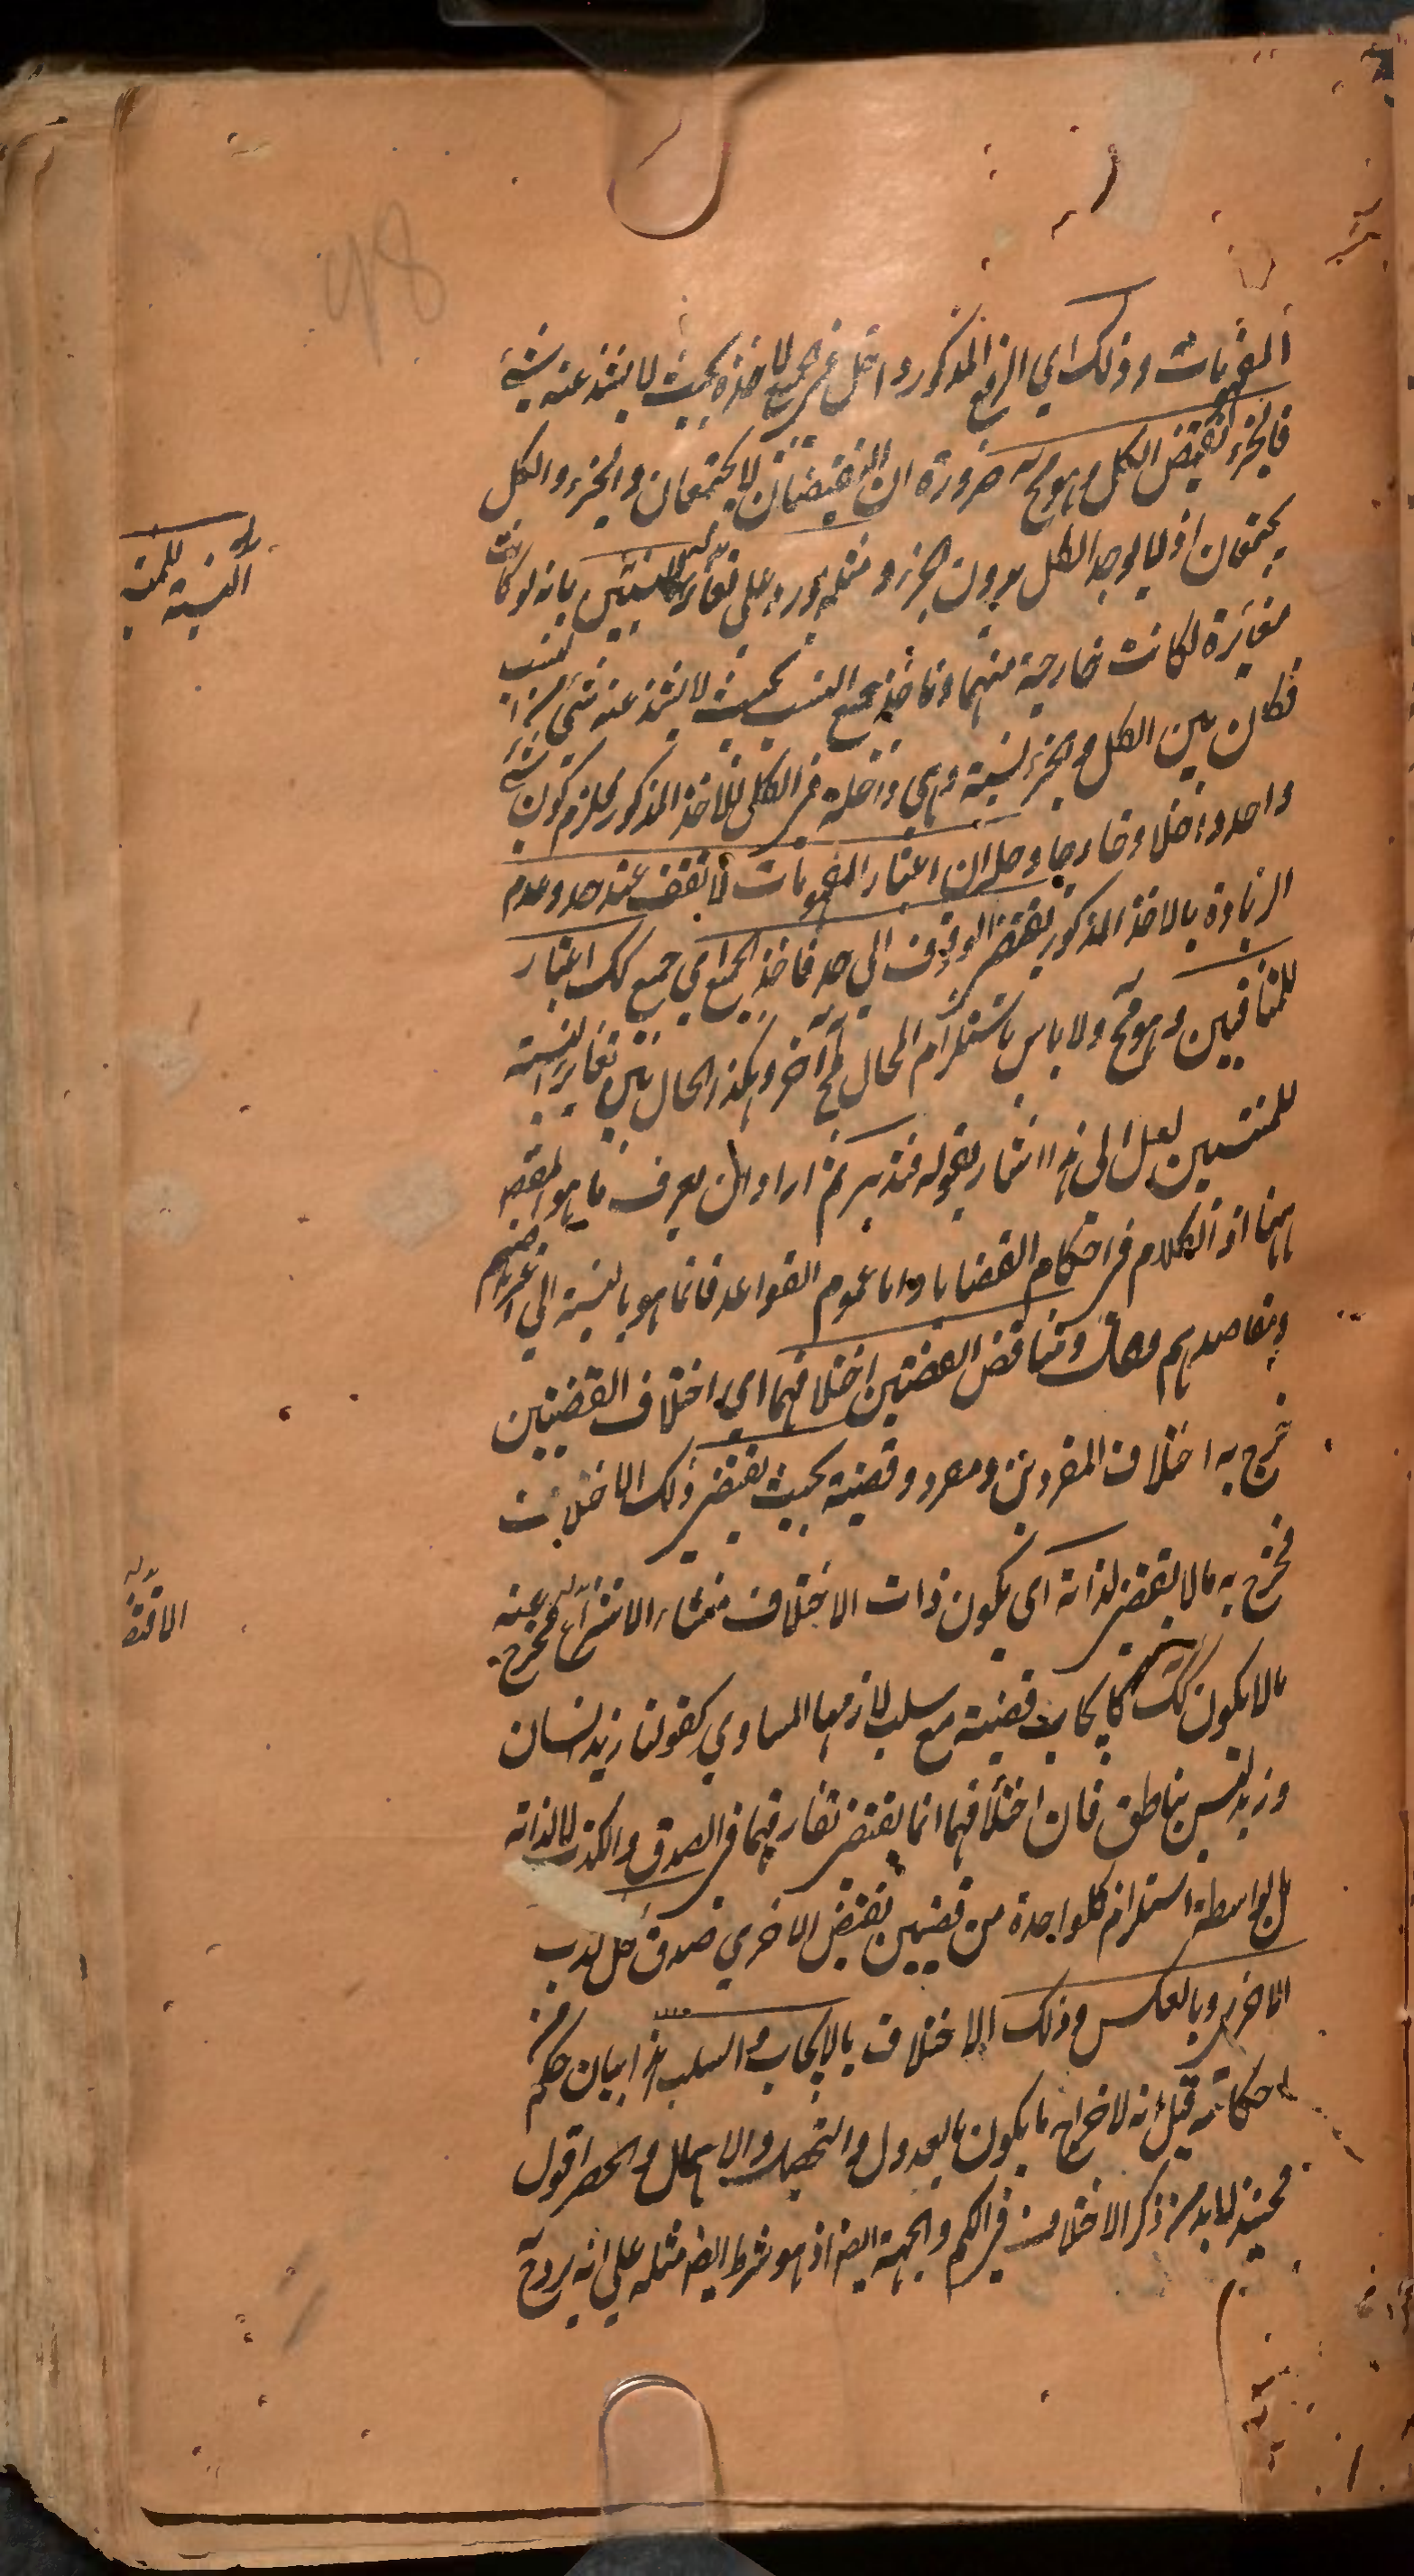 المفهومات وذلك اي الرفع المذكور داخل في الجميع لاخذه بحيث لا يشذ عنه شئ
فالجزء نقيض الكل وهو مح ضرورة ان النقيضان لا يجتمعان والجزء والكل
يجتمعان اذ لا يوجد الكل بدون الجزء ومثله يورد على تغاير النسبة للمنتسبين بانه لو كانت
مغايرة لكانت خارجة منهما وناخذ جميع النسب بحيث لا يشذ عنه شئ من النسب
فكان بين الكل والجزء نسبة وهي داخلة في الكل للاخذ المذكور فلزم كون شئ
واحد داخلا وخارجا وحله ان اعتبار المفهومات لا تقف عند حد وعدم
الزيادة بالاخذ المذكور يقتضي الوقوف الى حد فاخذ الجميع اي جميع كك اعتبار
للمتنافيين وهو مح ولا باس باستلزام المحال مح آخر وهكذا حال بين تغاير النسبة
للمنتسبين لعل الى هذا اشار بقوله فتدبر ثم اراد ان يعرف ما هو المقصود
ههنا اذ الكلام في احكام القضايا واما عموم القواعد فانما هو بالنسبة الى اغراضهم
ومقاصدهم فقال وتناقض القضيتين اختلافهما اي اختلاف القضيتين
خرج به اختلاف المفردين ومفرد وقضية بحيث يقتضي ذلك الاختلاف
فخرج به ما لا يقتضي لذاته اي يكون ذات الاختلاف منشاء الانتزاع فخرج عنه
ما لا يكون كك كايجاب قضية مع سلب لازمها المساوي كقولنا زيد انسان
وزيد ليس بناطق فان اختلافهما انما يقتضي تفارقهما في الصدق والكذب لا لذاته
بل بواسطة استلزام كل واحدة من قضيتين نقيض الاخري صدق كل كذب
الاخري وبالعكس وذلك الاختلاف بالايجاب والسلب هذا بيان حكم من
احكامه قيل انه لاخراج ما يكون بالعدول والتحصيل والاهمال والحصر اقول
فحينئذ لابد من ذكر الاختلاف في الكم والجهة ايضا اذ هو شرط ايضا مثله على انه يرد ح
النسبة للمنتسبين
الاقتضاء
48